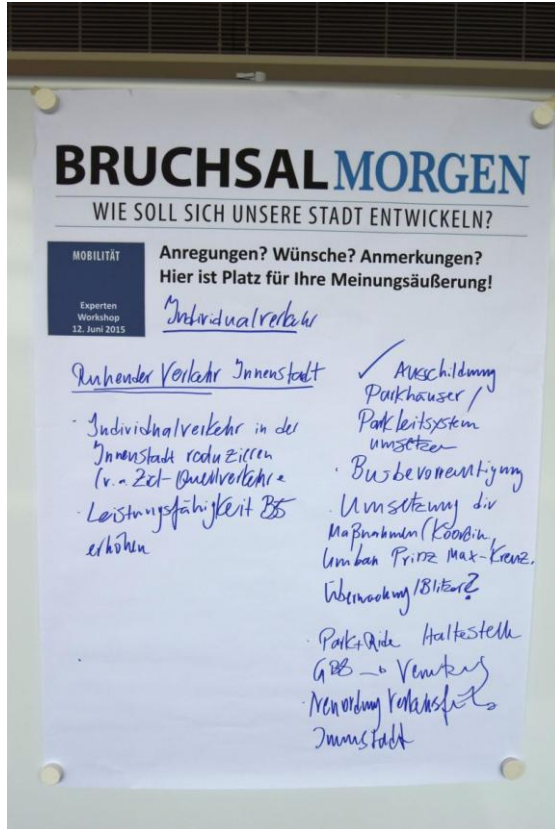 BRUCHSAL MORGEN
WIE SOLL SICH UNSERE STADT ENTWICKELN?
MOBILITÄT
Experten
Workshop
12. Juni 2015
Anregungen? Wünsche? Anmerkungen?
Hier ist Platz für Ihre Meinungsäußerung!
Individualverkehr
Ruhender Verkehr Innenstadt
· Individualverkehr in der
Innenstadt reduzieren
(v.a Ziel-Quellverkehre
· Leistungsfähigkeit B35
erhöhen
✓ Ausschildung
Parkhäuser /
Parkleitsystem
umsetzen
· Busbevorrechtigung
· Umsetzung div
Maßnahmen (Koordin.
Umbau Prinz Max-Kreuz.
Überwachung / Blitzer?
· Park+Ride Haltestelle
· Neuordnung
Innenstadt